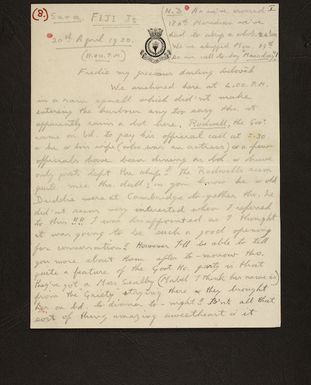 (8.) Suva, FIJI Is
20th April 1920.
(11.00 P.M.)
N.B. As we've crossed I
180th Meridian we've
had to a whole
We skipped Mon. 19th
so we call to-day
Freddie my precious darling beloved
We anchored here at 4.00 P.M.
in a rain squall which didn't make
entering the harbour any too easy tho' it
apparently rains a lot here. Rodwell, the Gov:
came on bd. to pay his official call at 5.30
& he & his wife (who was an actress) & a few
officials have been dining on bd. & have
only just left the ship!! The Rodwells seem
quite nice tho' dull; in you know he & old
were at Cambridge together tho' he
did'nt seem very interested when I referred
to him!! I was disappointed as I thought
it was going to be such a good opening
for conversation!! However I'll be able to tell
you more about them after to-morrow tho.
quite a feature of the Govt. Ho. party is that
they've got a Miss Sealby (Mabel I think her name is)
from the "Gaiety" staying there & they brought
her on bd. to dinner to-night!! Is'nt all that
sort of thing amazing sweetheart & it